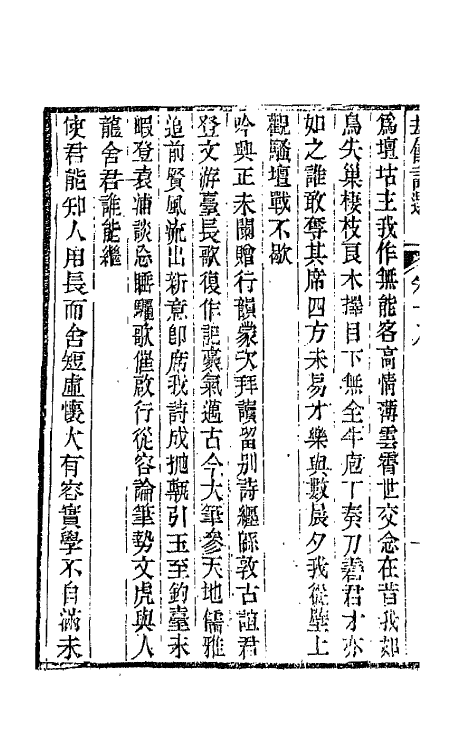 爲壇坫主我作無能客高情薄雲霄世交念在昔我如
鳥失巢棲枝良木擇目下無全牛庖丁奏刀砉君才亦
如之誰敢奪其席四方未易才樂與數晨夕我從壁上
觀騷壇戰不歇
吟興正未闌贈行韻蒙次拜讀留别詩經師敦古誼君
登文游臺長歌復作記豪氣邁古今大筆參天地儒雅
追前賢風流出新意即席我詩成拋甎引玉至釣臺未
暇登袁浦談忘睡驪歌催啟行從容論筆勢文虎與人
龍舍君誰能繼
使君能知人用長而舍短虚懷大有容實學不自滿未